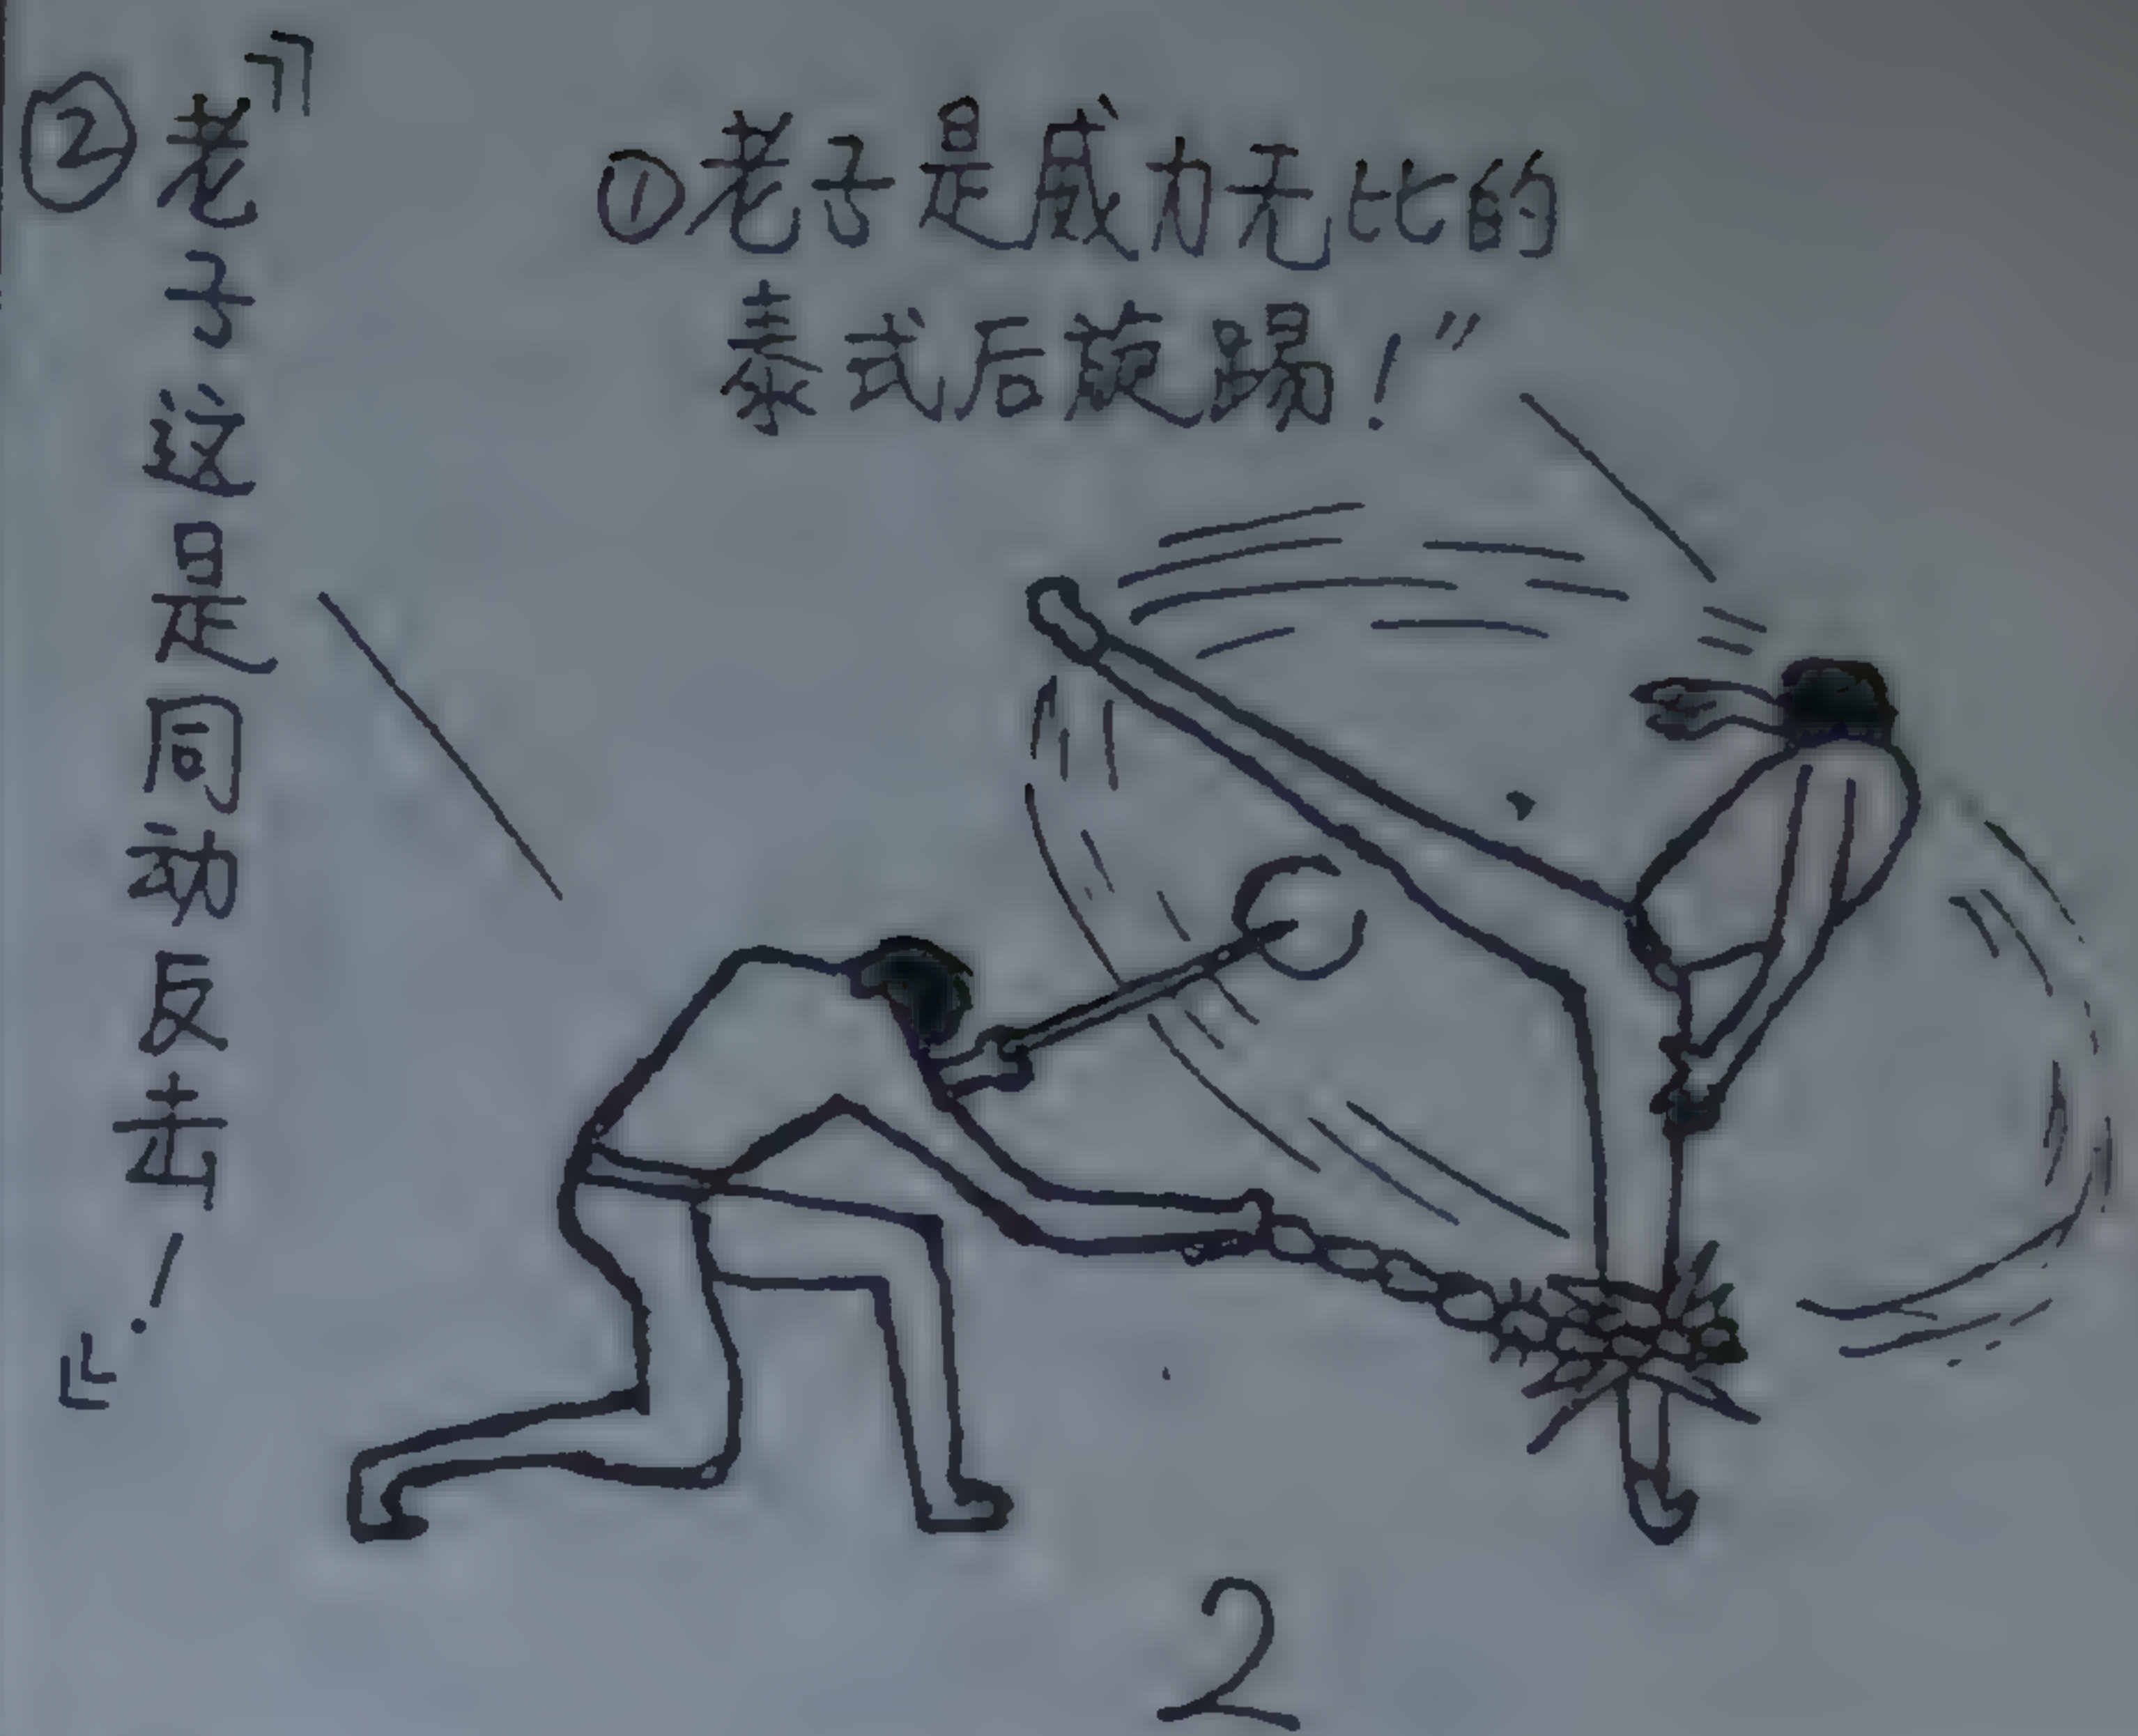 ①老子是威力无比的
泰式后旋踢!”
②『老子这是同动反击!』
2